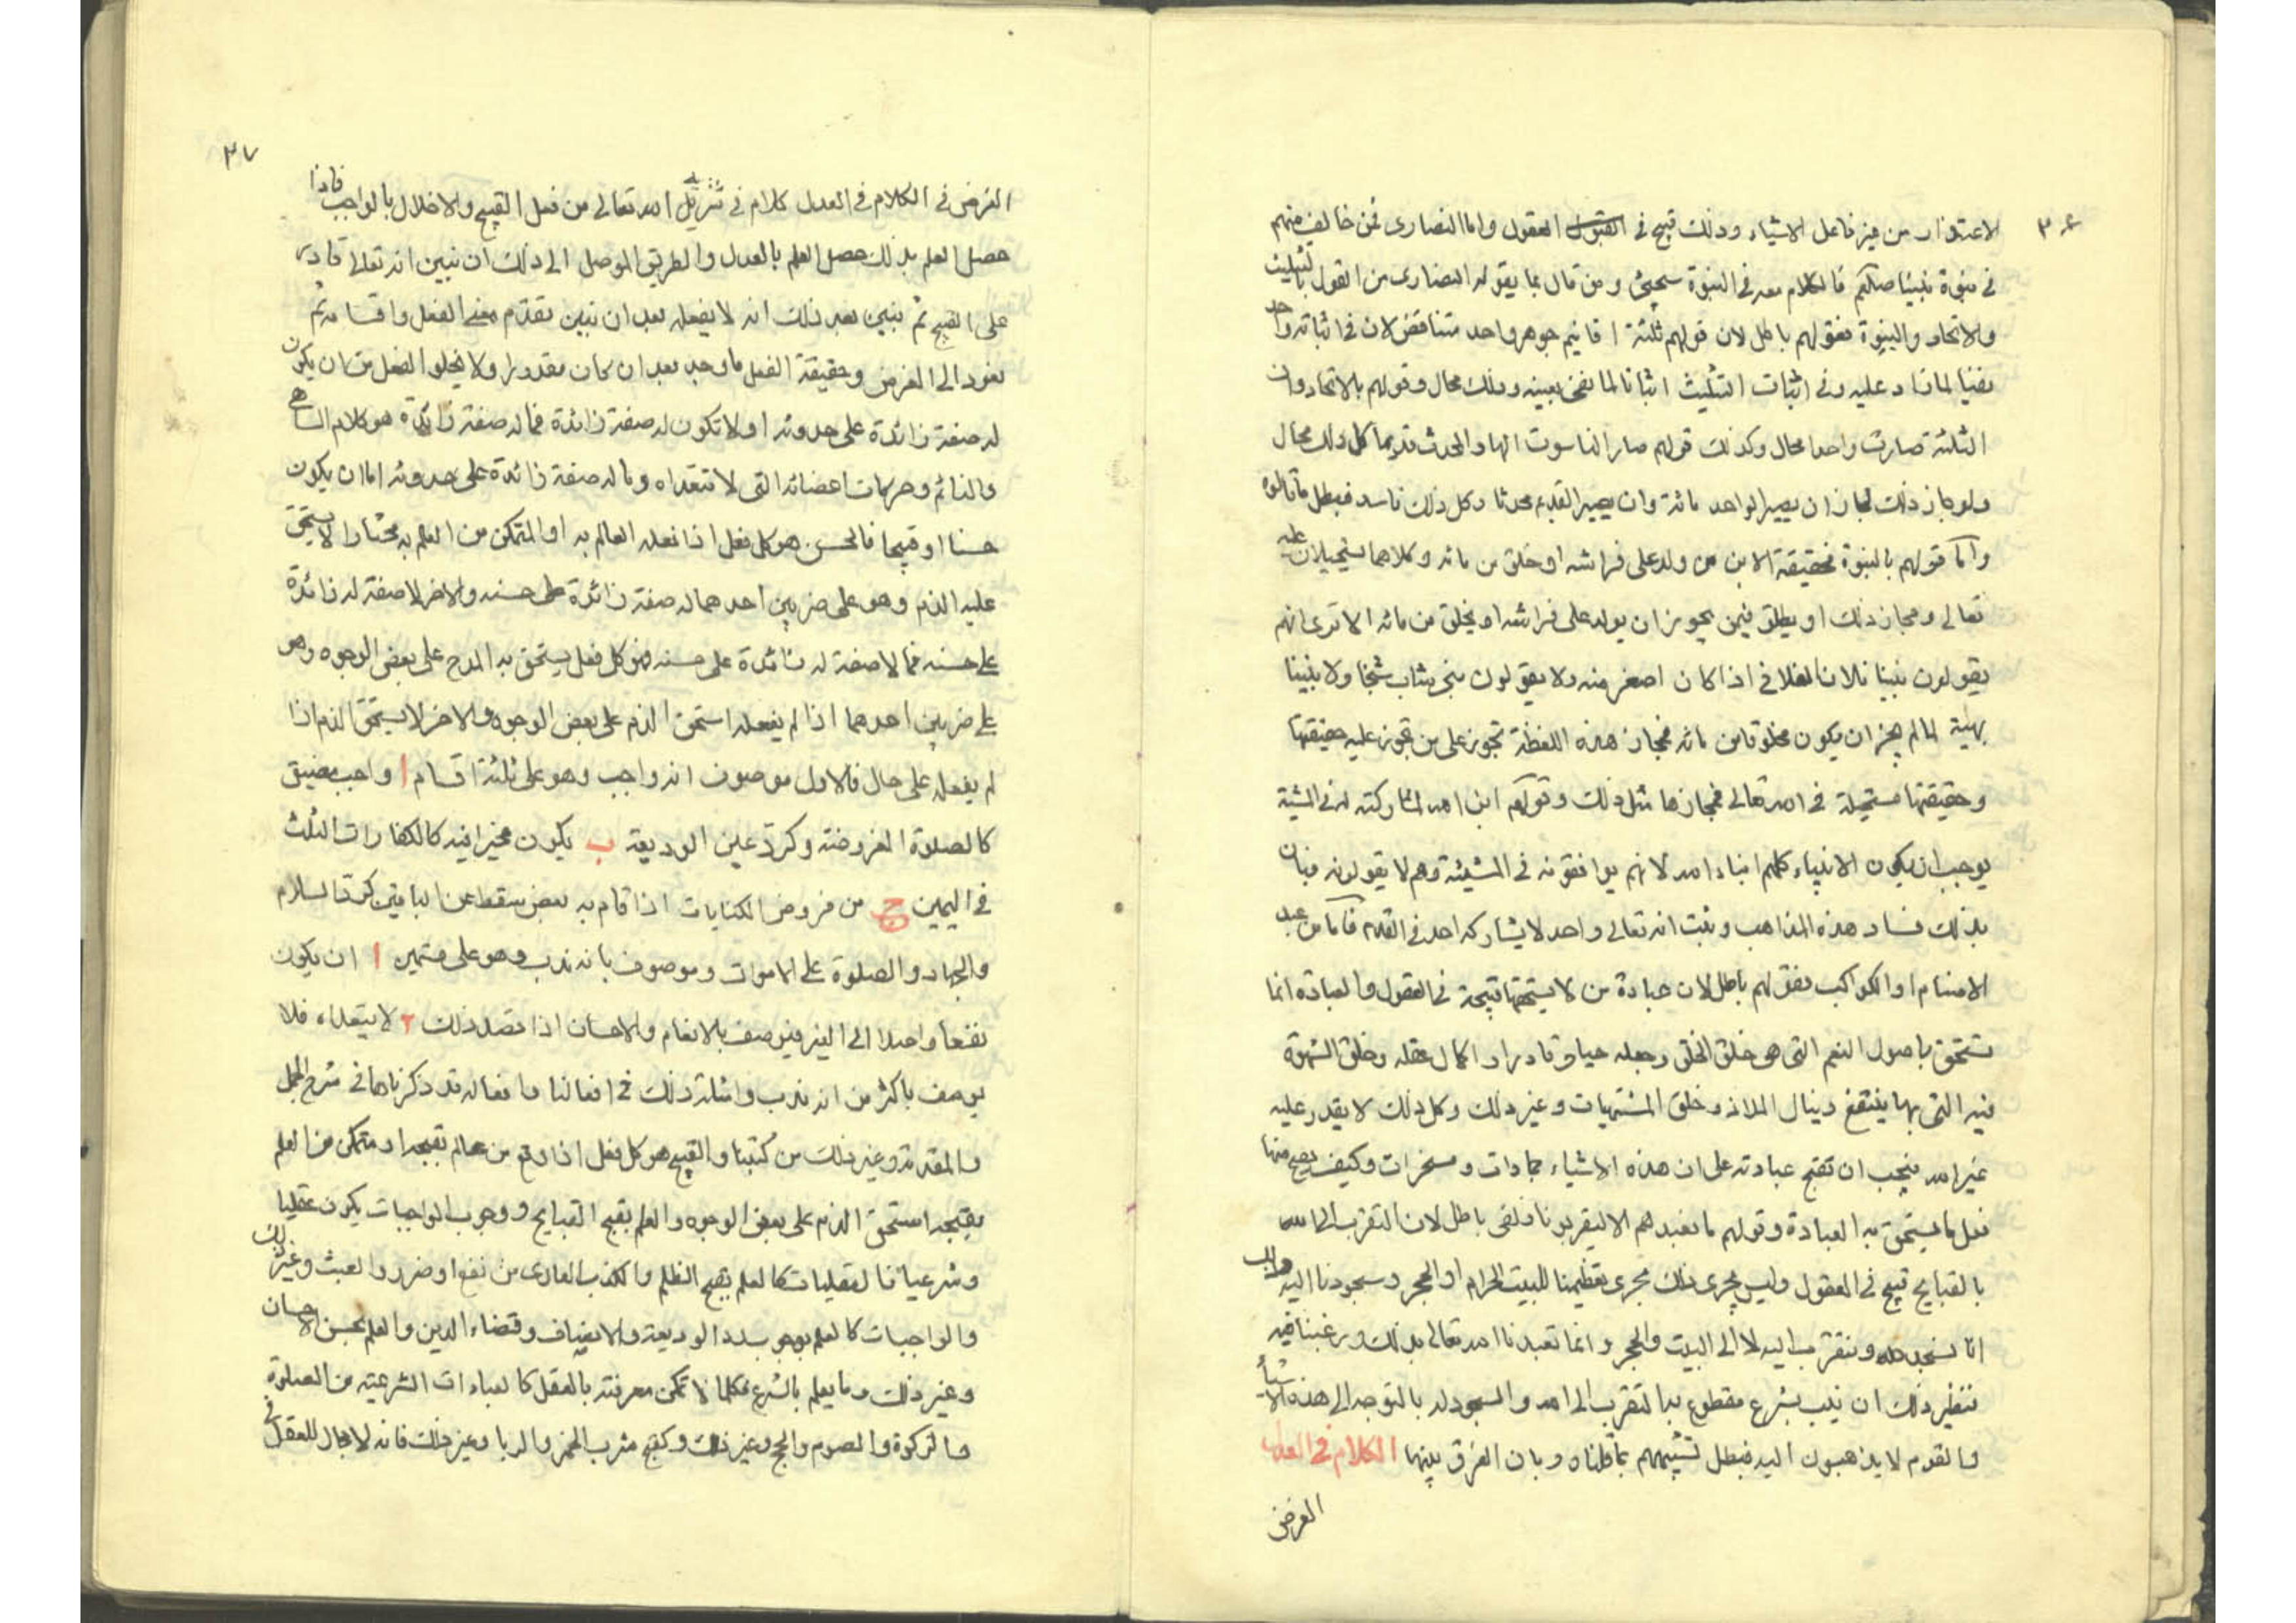 ٣٦
الاعتذار من غير فاعل الاشياء وذلك قبيح فى العقول واما النصارى فمن خالف منهم
فى نبوة نبينا صلعم فالكلام معه فى النبوة سيجئ ومن قال بما يقوله النصارى من القول بالتثليث
والاتحاد والبنوة فقولهم باطل لان قولهم ثلثة اقانيم جوهر واحد متناقض لان فى اثباته واحد
نفيا لمازاد عليه وفى اثبات التثليث اثباتا لما نفى بعينه وذلك محال وقولهم بالاتحاد وان
الثلثة صارت واحدا محال وكذلك قولهم صار الناسوت الها والمحدث قديما كل ذلك محال
ولو جاز ذلك لجاز ان يصير الواحد مائة وان يصير القديم محدثا وكل ذلك فاسد فبطل ما قالوه
واما قولهم بالبنوة فحقيقة الابن من ولد على فراشه او خلق من مائه وكلاهما يستحيلان عليه
تعالى ومجاز ذلك او يطلق فيمن يجوز ان يولد على فراشه او يخلق من مائه الا ترى انهم
يقولون تبنا فلان الفلانى اذا كان اصغر منه ولا يقولون تبنى شاب شيخا ولا تبنينا
بهيمة لما لم يجز ان يكون مخلوقا من مائه فمجاز هذه اللفظة تجوز على من تجوز عليه حقيقتها
وحقيقتها مستحيلة فى الله تعالى فمجازها مثل ذلك وقولهم ابن الله لمشاركته له فى المشية
يوجب ان يكون الانبياء كلهم ابناء الله لانهم يوافقونه فى المشيئة وهم لا يقولونه فبان
بذلك فساد هذه المذاهب وثبت انه تعالى واحد لا يشاركه احد فى القدم فاما من عبد
الاصنام او الكواكب فقولهم باطل لان عبادة من لا يستحقها قبيحة فى العقول والعبادة انما
تستحق باصول النعم التى هى خلق الخلق وجعله حيا وقادرا واكمال عقله وخلق الشهوة
فيه التى بها ينتفع وينال الملاذ وخلق المشتهيات وغير ذلك وكل ذلك لا يقدر عليه
غير الله فيجب ان تقبح عبادته على ان هذه الاشياء جمادات ومسخرات وكيف يصح منها
فعل ما يستحق به العبادة وقولهم ما نعبدهم الا ليقربونا زلفى باطل لان التقرب الى الله
بالقبايح قبيح فى العقول وليس يجرى ذلك مجرى تعظيمنا للبيت الحرام او الحجر وسجودنا اليه وذلك
انا نسجد لله ونتقرب اليه لا الى البيت والحجر وانما تعبدنا الله تعالى بذلك ورغبنا فيه
فنظير ذلك ان يثبت بشرع مقطوع به التقرب الى الله والسجود له بالتوجه الى هذه الاشياء
والقوم لا يذهبون اليه فبطل تشبيههم بما قلناه وبان الفرق بينهما الكلام فى العدل
الغرض
٣٧
الغرض فى الكلام فى العدل كلام فى تنزيه الله تعالى من فعل القبيح والاخلال بالواجب فاذا
حصل العلم بذلك حصل العلم بالعدل والطريق الموصل الى ذلك ان نبين انه تعالى قادر
على القبيح ثم نبين بعد ذلك انه لا يفعله بعد ان نبين تقدم معنى الفعل واقسامه ثم
نعود الى الغرض وحقيقة الفعل ما وجد بعد ان كان مقدورا ولا يخلو الفعل من ان يكون
له صفة زائدة على حدوثه او لا تكون له صفة زائدة فما له صفة زائدة هو كلام الساهى
والنائم وحركات اعضائه التى لا تتعداه وما له صفة زائدة على حدوثه اما ان يكون
حسنا او قبيحا فالحسن هو كل فعل اذا فعله العالم به او المتمكن من العلم به مختارا لا يستحق
عليه الذم وهو على ضربين احدهما له صفة زائدة على حسنه والاخر لا صفة له زائدة
على حسنه فما لا صفة له زائدة على حسنه فهو كل فعل يستحق به المدح على بعض الوجوه وهو
على ضربين احدهما اذا لم يفعله استحق الذم على بعض الوجوه والاخر لا يستحق الذم اذا
لم يفعله على حال فالاول موصوف انه واجب وهو على ثلثة اقسام ا واجب مضيق
كالصلوة المفروضة وكرد عين الوديعة ب يكون مخيرا فيه كالكفارات الثلث
فى اليمين ج من فروض الكفايات اذا قام به بعض سقط عن الباقين كرد السلام
والجهاد والصلوة على الاموات وموصوف بانه ندب وهو على قسمين ا ان يكون
نفعا واصلا الى الغير فيوصف بالانعام والاحسان اذا قصد ذلك ٢ لا يتعداه فلا
يوصف باكثر من انه ندب وامثلة ذلك فى افعالنا وافعاله قد ذكرناها فى شرح الجمل
والمقدمة وغير ذلك من كتبنا والقبيح هو كل فعل اذا وقع من عالم بقبحه او متمكن من العلم
بقبحه استحق الذم على بعض الوجوه والعلم بقبح القبايح ووجوب الواجبات يكون عقليا
وشرعيا فالعقليات كالعلم بقبح الظلم والكذب العارى من نفع او ضرر والعبث وغير ذلك
والواجبات كالعلم بوجوب رد الوديعة والانصاف وقضاء الدين والعلم بحسن الاحسان
وغير ذلك وما يعلم بالشرع فكلما لا تمكن معرفته بالعقل كالعبادات الشرعية من الصلوة
والزكوة والصوم والحج وغير ذلك وكقبح شرب الخمر والربا وغير ذلك فانه لا مجال للعقل فى